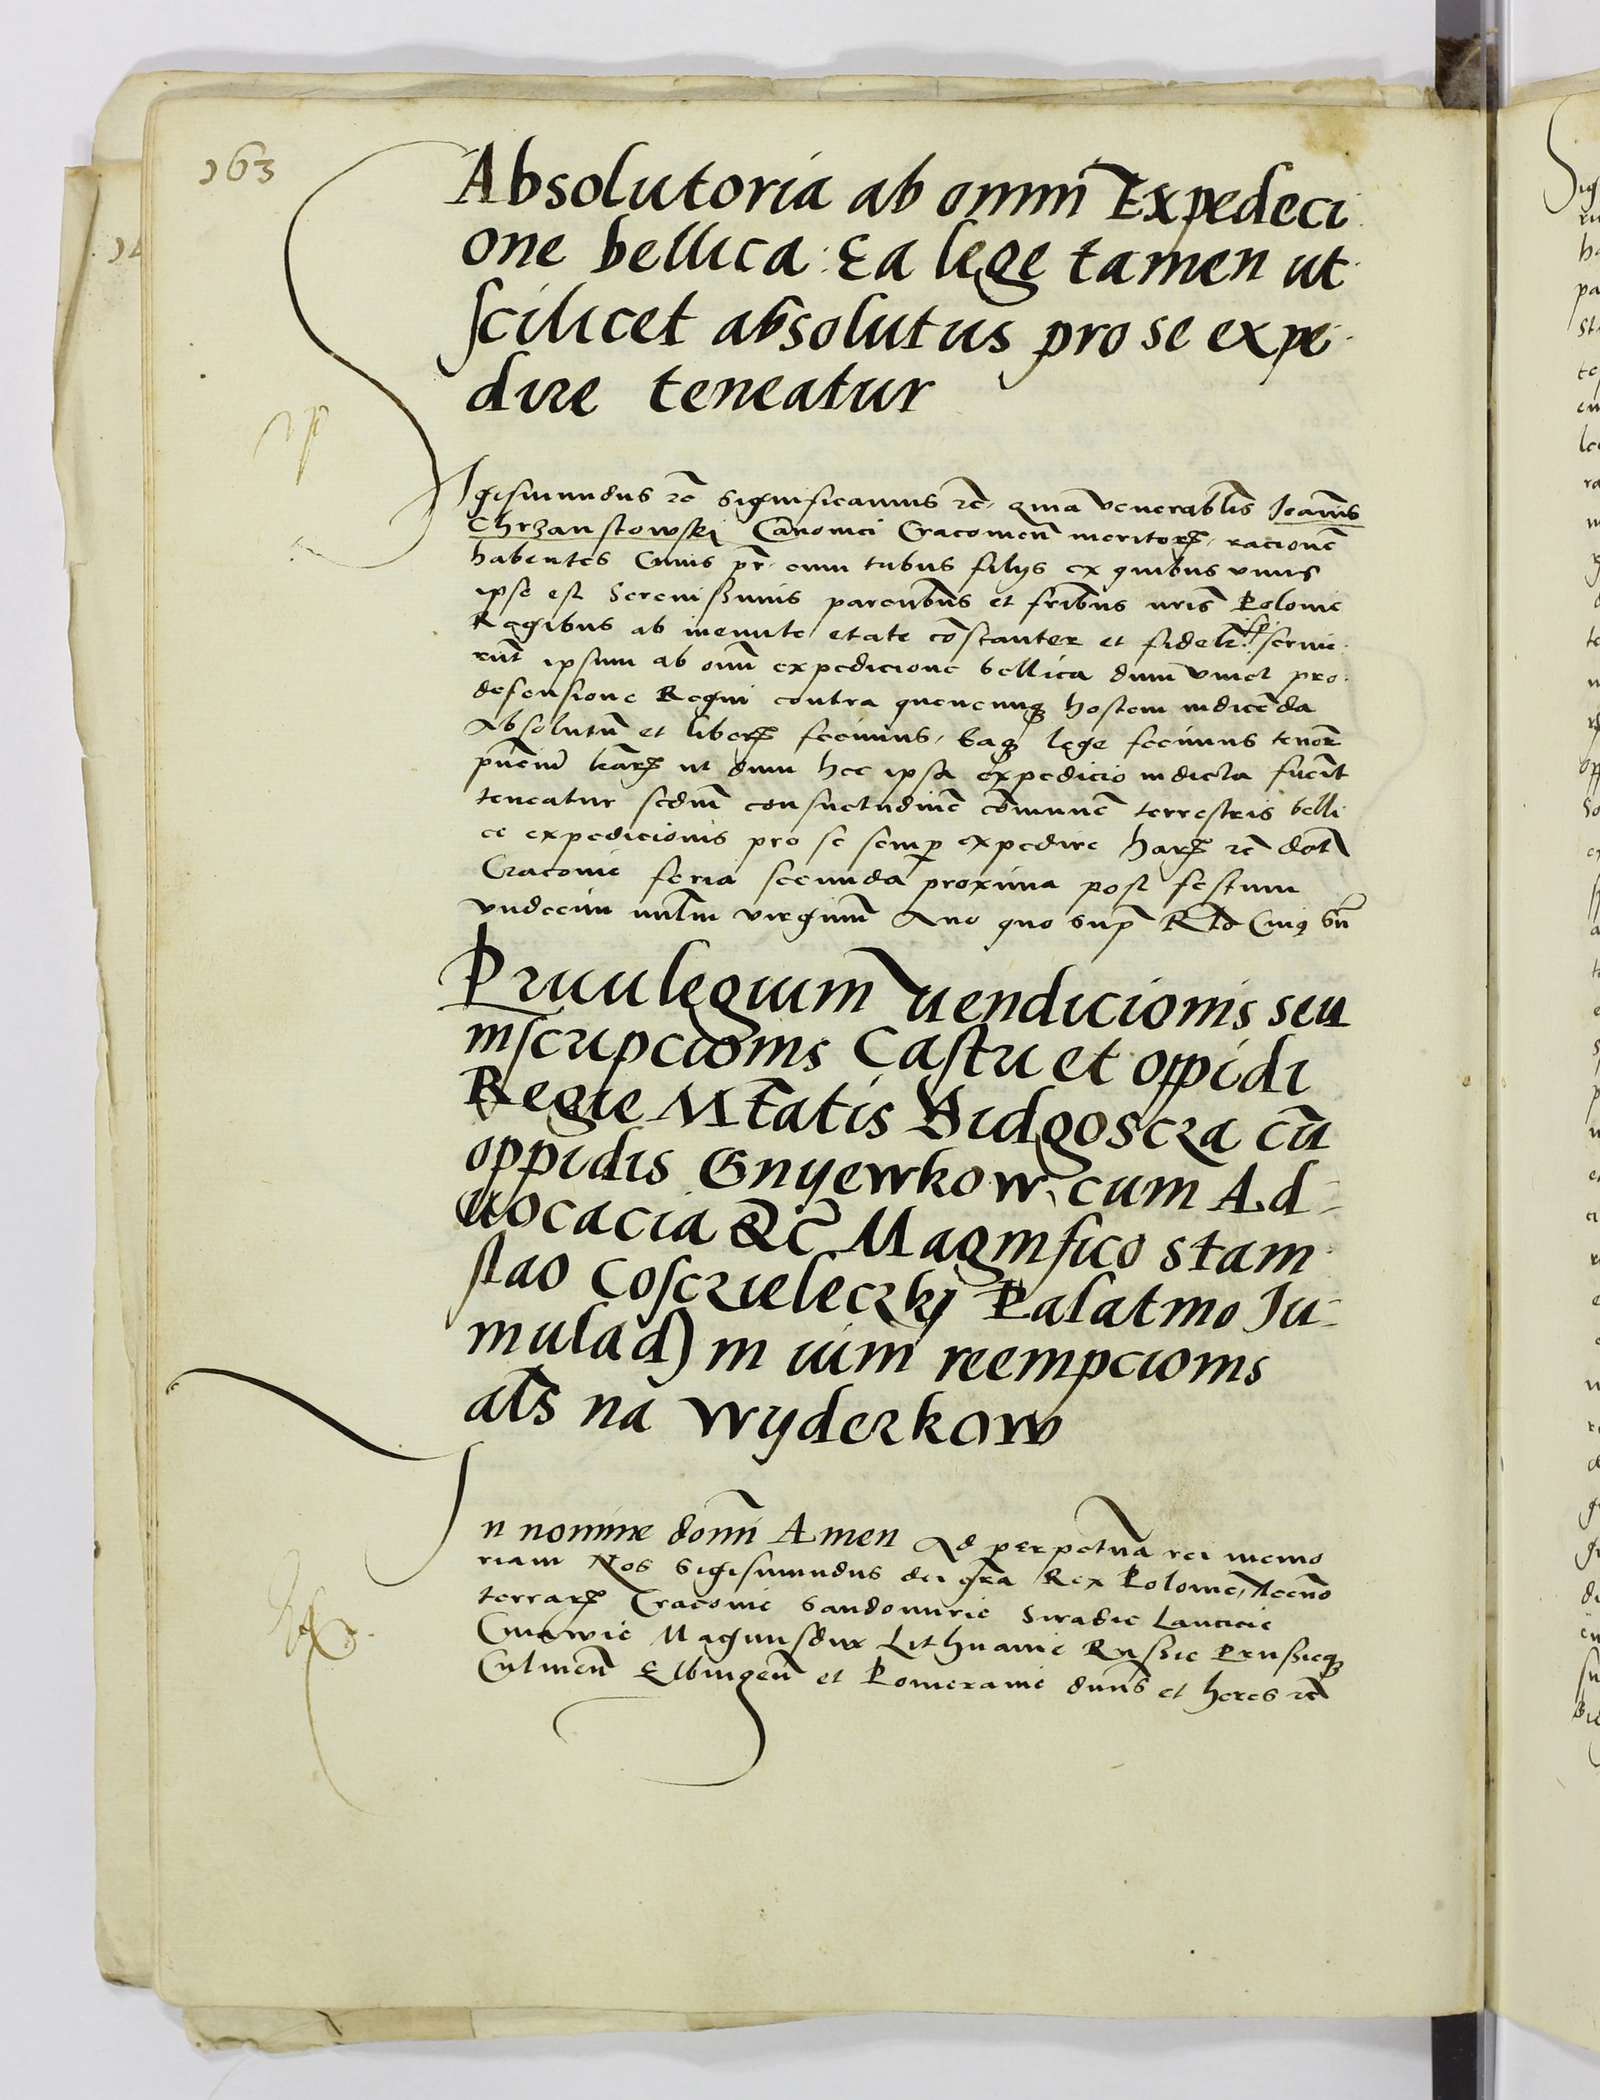 163
Absolutoria ab omni Expedeci
one bellica: Ea lege tamen ut
scilicet absolutus pro se expe
dire teneatur
Sigismundus rc̄ Significamus rc̄. quia venerabl̄is Ioan̄is
Chrzanstowski Canonici Cracovien̄ meritorꝝ, racionē
habentes Cuius pr̄ cum tribus filijs ex quibus unus
ipse est Serenissimis parentibus et fr̄ibus nr̄is Polonie
Regibus ab ineunte etate cōstanter et fidelr̄ servie
rūt ipsum ab om̄i expedicione bellica dum vivet pro
defensione Regni contra quencunqꝫ hostem indicēda
Absolutū et liberꝝ fecimus, Eaqꝫ lege fecimus tenore
pn̄ciū lr̄arꝝ ut dum hec ipsa expedicio indicta fuerit
teneatur scdm̄ consuetudinē cōmunē terrestris belli
ce expedicionis pro se semꝑ expedire harꝝ rc̄ dat̄
Cracovie feria secunda proxima post festum
undecim mil̄m virginū Anō quo supꝛ̄ R̄lo Cuiꝰ sup̄
Privilegium vendicionis seu
inscripcionis Castri et oppidi
Regie Mt̄atis Bidgoscza cū
oppidis Gnyewkow, cum Ad=
vocacia &c̄ Magnifico Stani
slao Cosczieleczkj Palatino Iu=
niuladꝭ in vim reempcionis
al̄s na wyderkow
In nomine domī Amen Ad perpetuā rei memo
riam Nos Sigismundus dei gr̄a Rex Polonie, Necnō
terrarꝝ Cracovie Sandomirie Siradie Lancicie
Cuiavie Magnusdux Lithuanie Russie Prussieqꝫ
Culmen̄ Elbingen̄ et Pomeranie dn̄us et heres rc̄